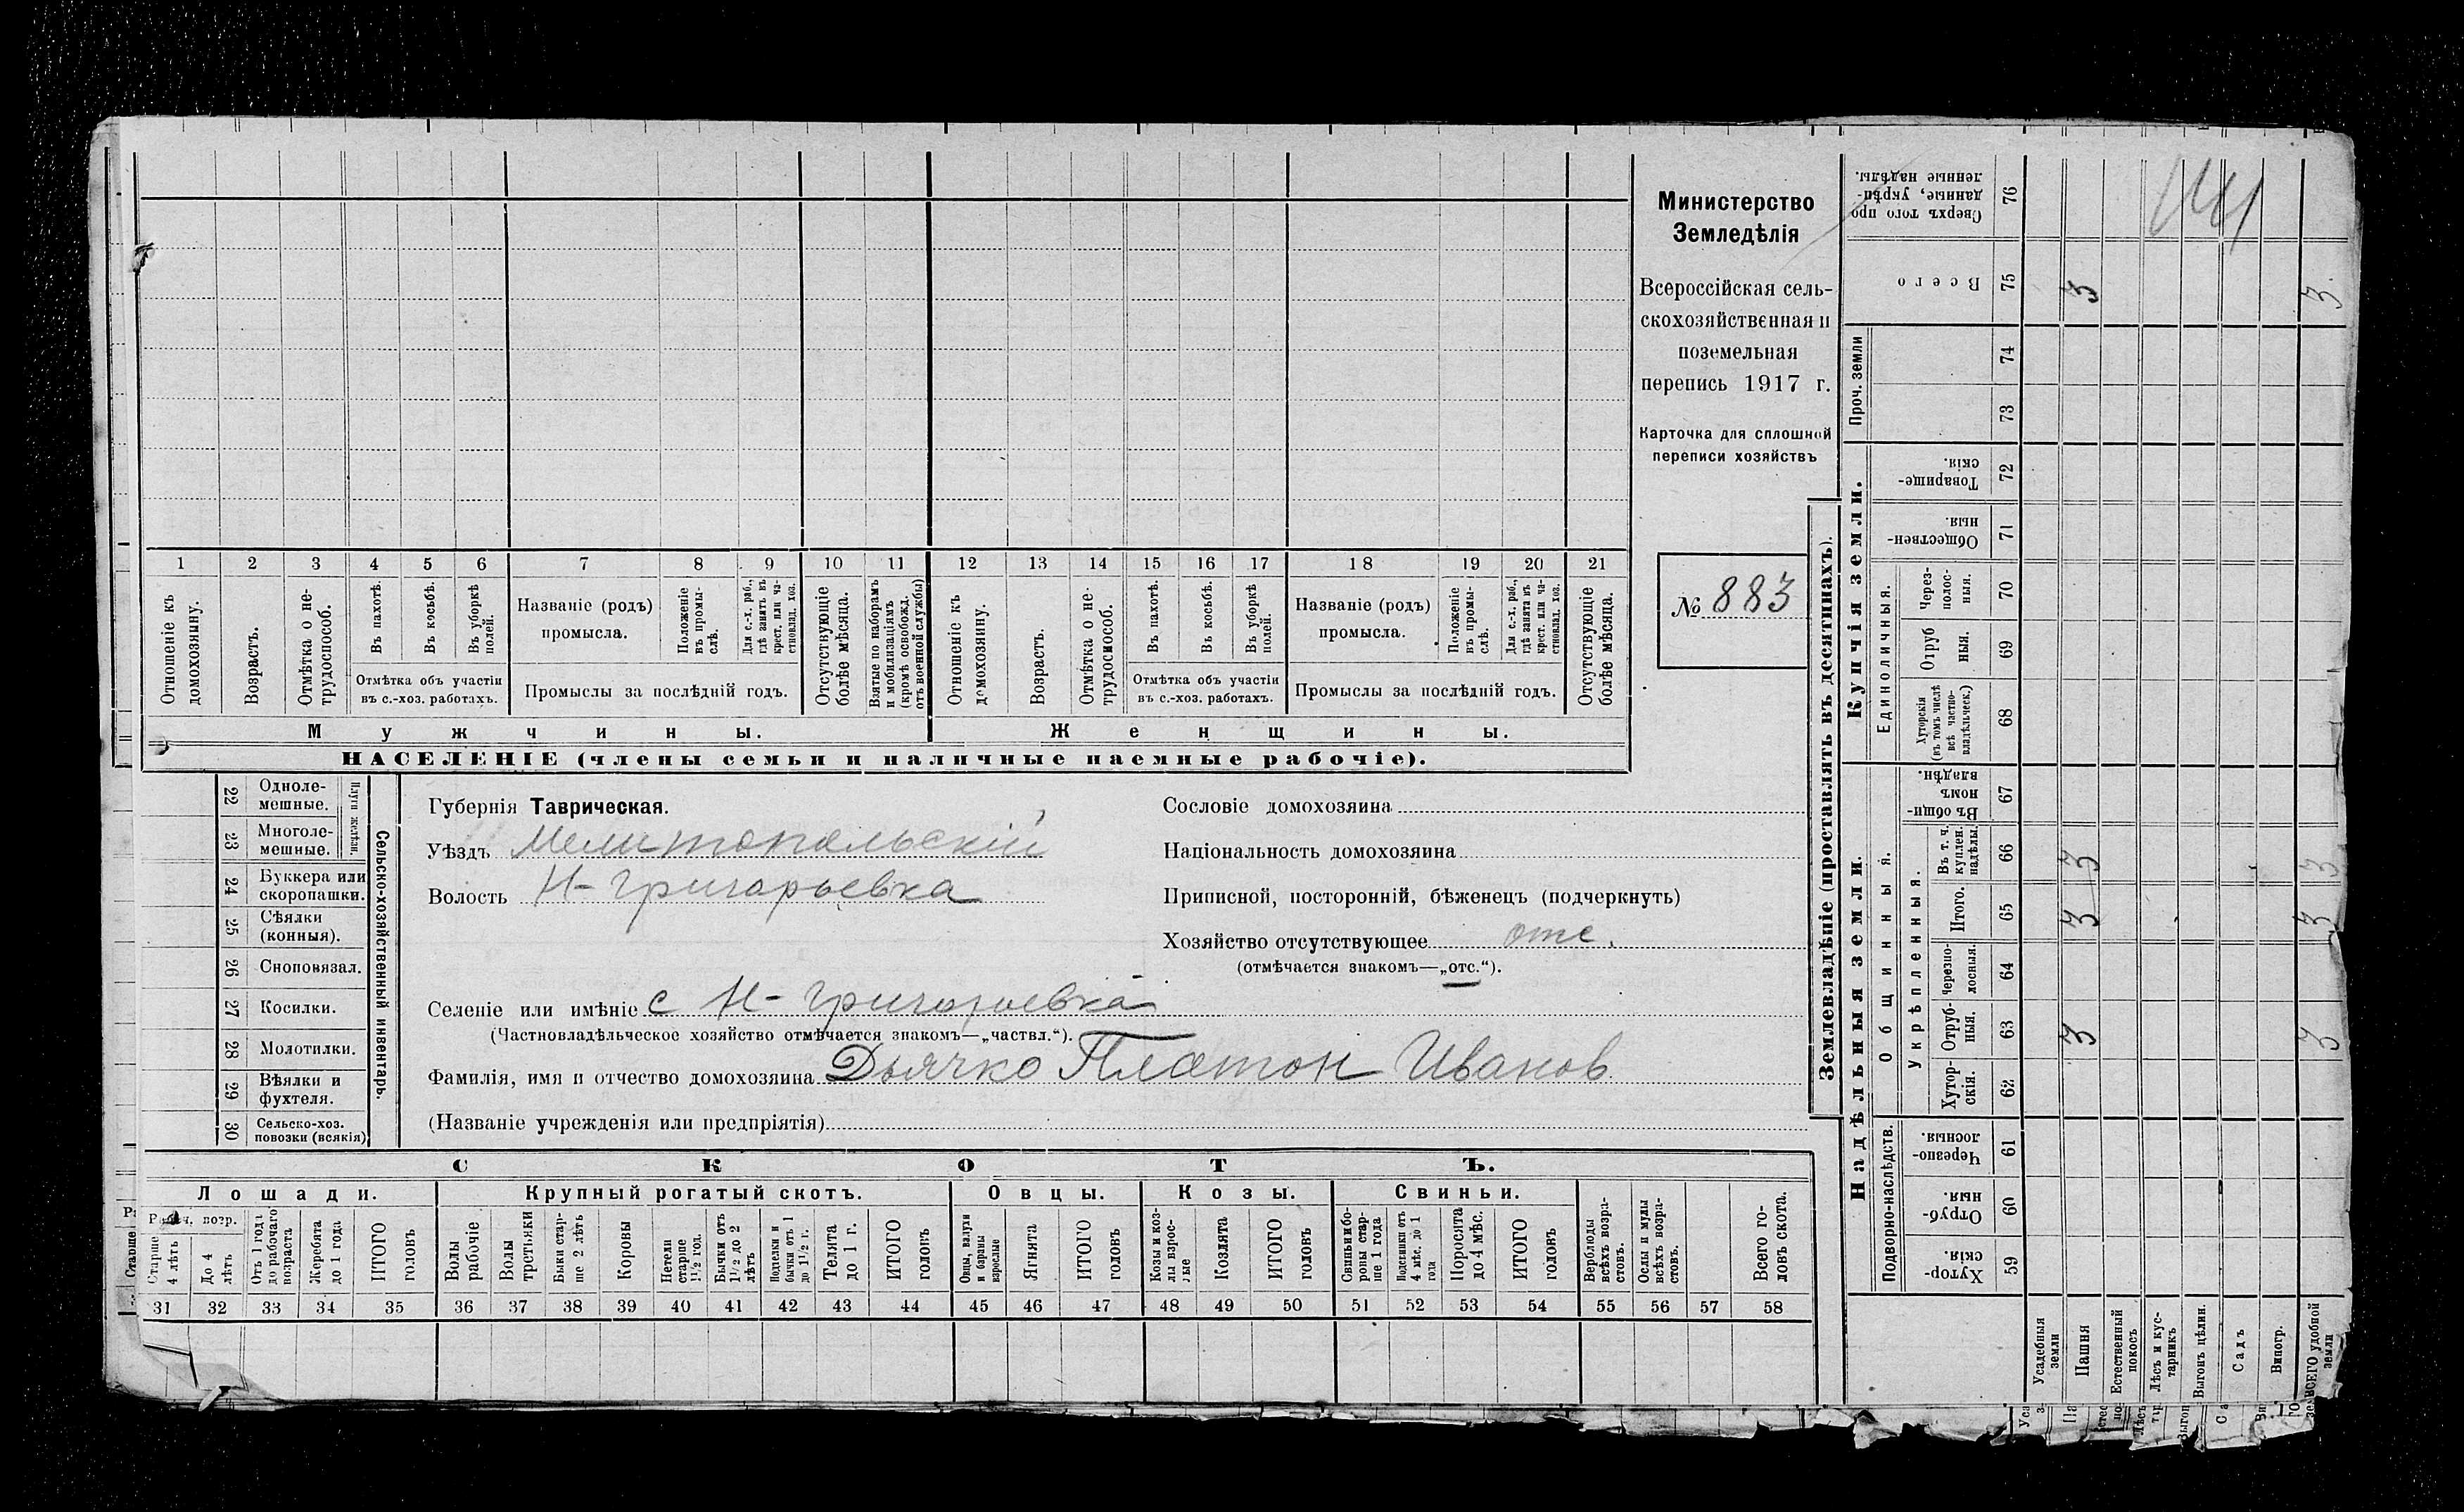 Министерство
Земледѣлія
Всероссійская сель-
скохозяйственная и
поземельная
перепись 1917 г.
Карточка для сплошной
переписи хозяйствъ
№ 883
1 2 3 4 5 6 7 8 9 10 11 12 13 14 15 16 17 18 19 20 21
Отношеніе къ домохозяину.
Возрастъ.
Отмѣтка о не-
трудоспособ.
Въ пахотѣ.
Въ косьбѣ.
Въ уборкѣ полей.
Отмѣтка объ участіи
въ с.-хоз. работахъ.
Названіе (родъ)
промысла.
Положеніе въ промы-
слѣ.
Для с.-х. раб., гдѣ занятъ въ крест. или ча-
стновлад. хоз.
Промыслы за послѣдній годъ.
Отсутствующіе болѣе мѣсяца.
Взятые по наборамъ и мобилизаціямъ (кромѣ освобожд. отъ военной службы)
Отношеніе къ домохозяину.
Возрастъ.
Отмѣтка о не-
трудоспособ.
Въ пахотѣ.
Въ косьбѣ.
Въ уборкѣ полей.
Отмѣтка объ участіи
въ с.-хоз. работахъ.
Названіе (родъ)
промысла.
Положеніе въ промы-
слѣ.
Для с.-х. раб., гдѣ занята въ крест. или ча-
стновлад. хоз.
Промыслы за послѣдній годъ.
Отсутствующіе болѣе мѣсяца.
Мужчины.
Женщины.
НАСЕЛЕНІЕ (члены семьи и наличные наемные рабочіе).
22 Одноле-
мешные.
23 Многоле-
мешные.
Плуги желѣзн.
24 Буккера или
скоропашки.
25 Сѣялки
(конныя).
26 Сноповязал.
27 Косилки.
28 Молотилки.
29 Вѣялки и
фухтеля.
30 Сельско-хоз.
повозки (всякія)
Сельско-хозяйственный инвентарь.
Губернія Таврическая.
Уѣздъ Мелитопольскій
Волость Н-Григорьевка
Сословіе домохозяина
Національность домохозяина
Приписной, посторонній, бѣженецъ (подчеркнуть)
Хозяйство отсутствующее отс.
(отмѣчается знакомъ—„отс.“).
Селеніе или имѣніе с Н-Григорьевка
(Частновладѣльческое хозяйство отмѣчается знакомъ—„частвл.“).
Фамилія, имя и отчество домохозяина Дьячко Платон Иванов
(Названіе учрежденія или предпріятія)
СКОТЪ.
Лошади.
Крупный рогатый скотъ.
Овцы.
Козы.
Свиньи.
Рабоч. возр.
Старше 4 лѣтъ
До 4 лѣтъ
Отъ 1 года до рабочаго возраста
Жеребята до 1 года
ИТОГО головъ
Волы рабочіе
Волы третьяки
Быки стар-
ше 2 лѣтъ
Коровы
Нетели старше 1½ год.
Бычки отъ 1½ до 2 лѣтъ
Подтелки и бычки отъ 1 до 1½ г.
Телята до 1 г.
ИТОГО головъ
Овцы, валухи и бараны взрослые
Ягнята
ИТОГО головъ
Козы и коз-
лы взрос-
лые
Козлята
ИТОГО головъ
Свиньи и бо-
ровы стар-
ше 1 года
Подсвинки отъ 4 мѣс. до 1 года
Поросята до 4 мѣс.
ИТОГО головъ
Верблюды всѣхъ возра-
стовъ.
Ослы и мулы всѣхъ возра-
стовъ.
Всего го-
ловъ скота.
31 32 33 34 35 36 37 38 39 40 41 42 43 44 45 46 47 48 49 50 51 52 53 54 55 56 57 58
Землевладѣніе (проставлять въ десятинахъ).
Купчія земли.
Надѣльныя земли.
Сверхъ того про
даныые, укрѣп-
ленные надѣлы.
76
Всего
75 3 3
Проч. земли
74
73
Товарище-
скія.
72
Обществен-
ныя.
71
Единоличныя.
Через-
полос-
ныя.
70
Отруб
ныя.
69
Хуторскія (въ томъ числѣ всѣ частно-
владѣльческ.)
68
Въ общи-
номъ
владѣн.
67
Общинныя.
Укрѣпленныя.
Въ т. ч. куплен. надѣлы.
66 3 3
Итого.
65 3 3
Черезпо-
лосныя.
64
Отруб-
ныя.
63 3 3
Хутор-
скія.
62
Подворно-наслѣдств.
Черезпо-
лосныя.
61
Отруб-
ныя.
60
Хутор-
скія.
59
Усадебныя земли
Пашня
Естественный покосъ
Лѣсъ и кус-
тарникъ
Выгонъ цѣлин.
Садъ
Виногр.
ВСЕГО удобной земли